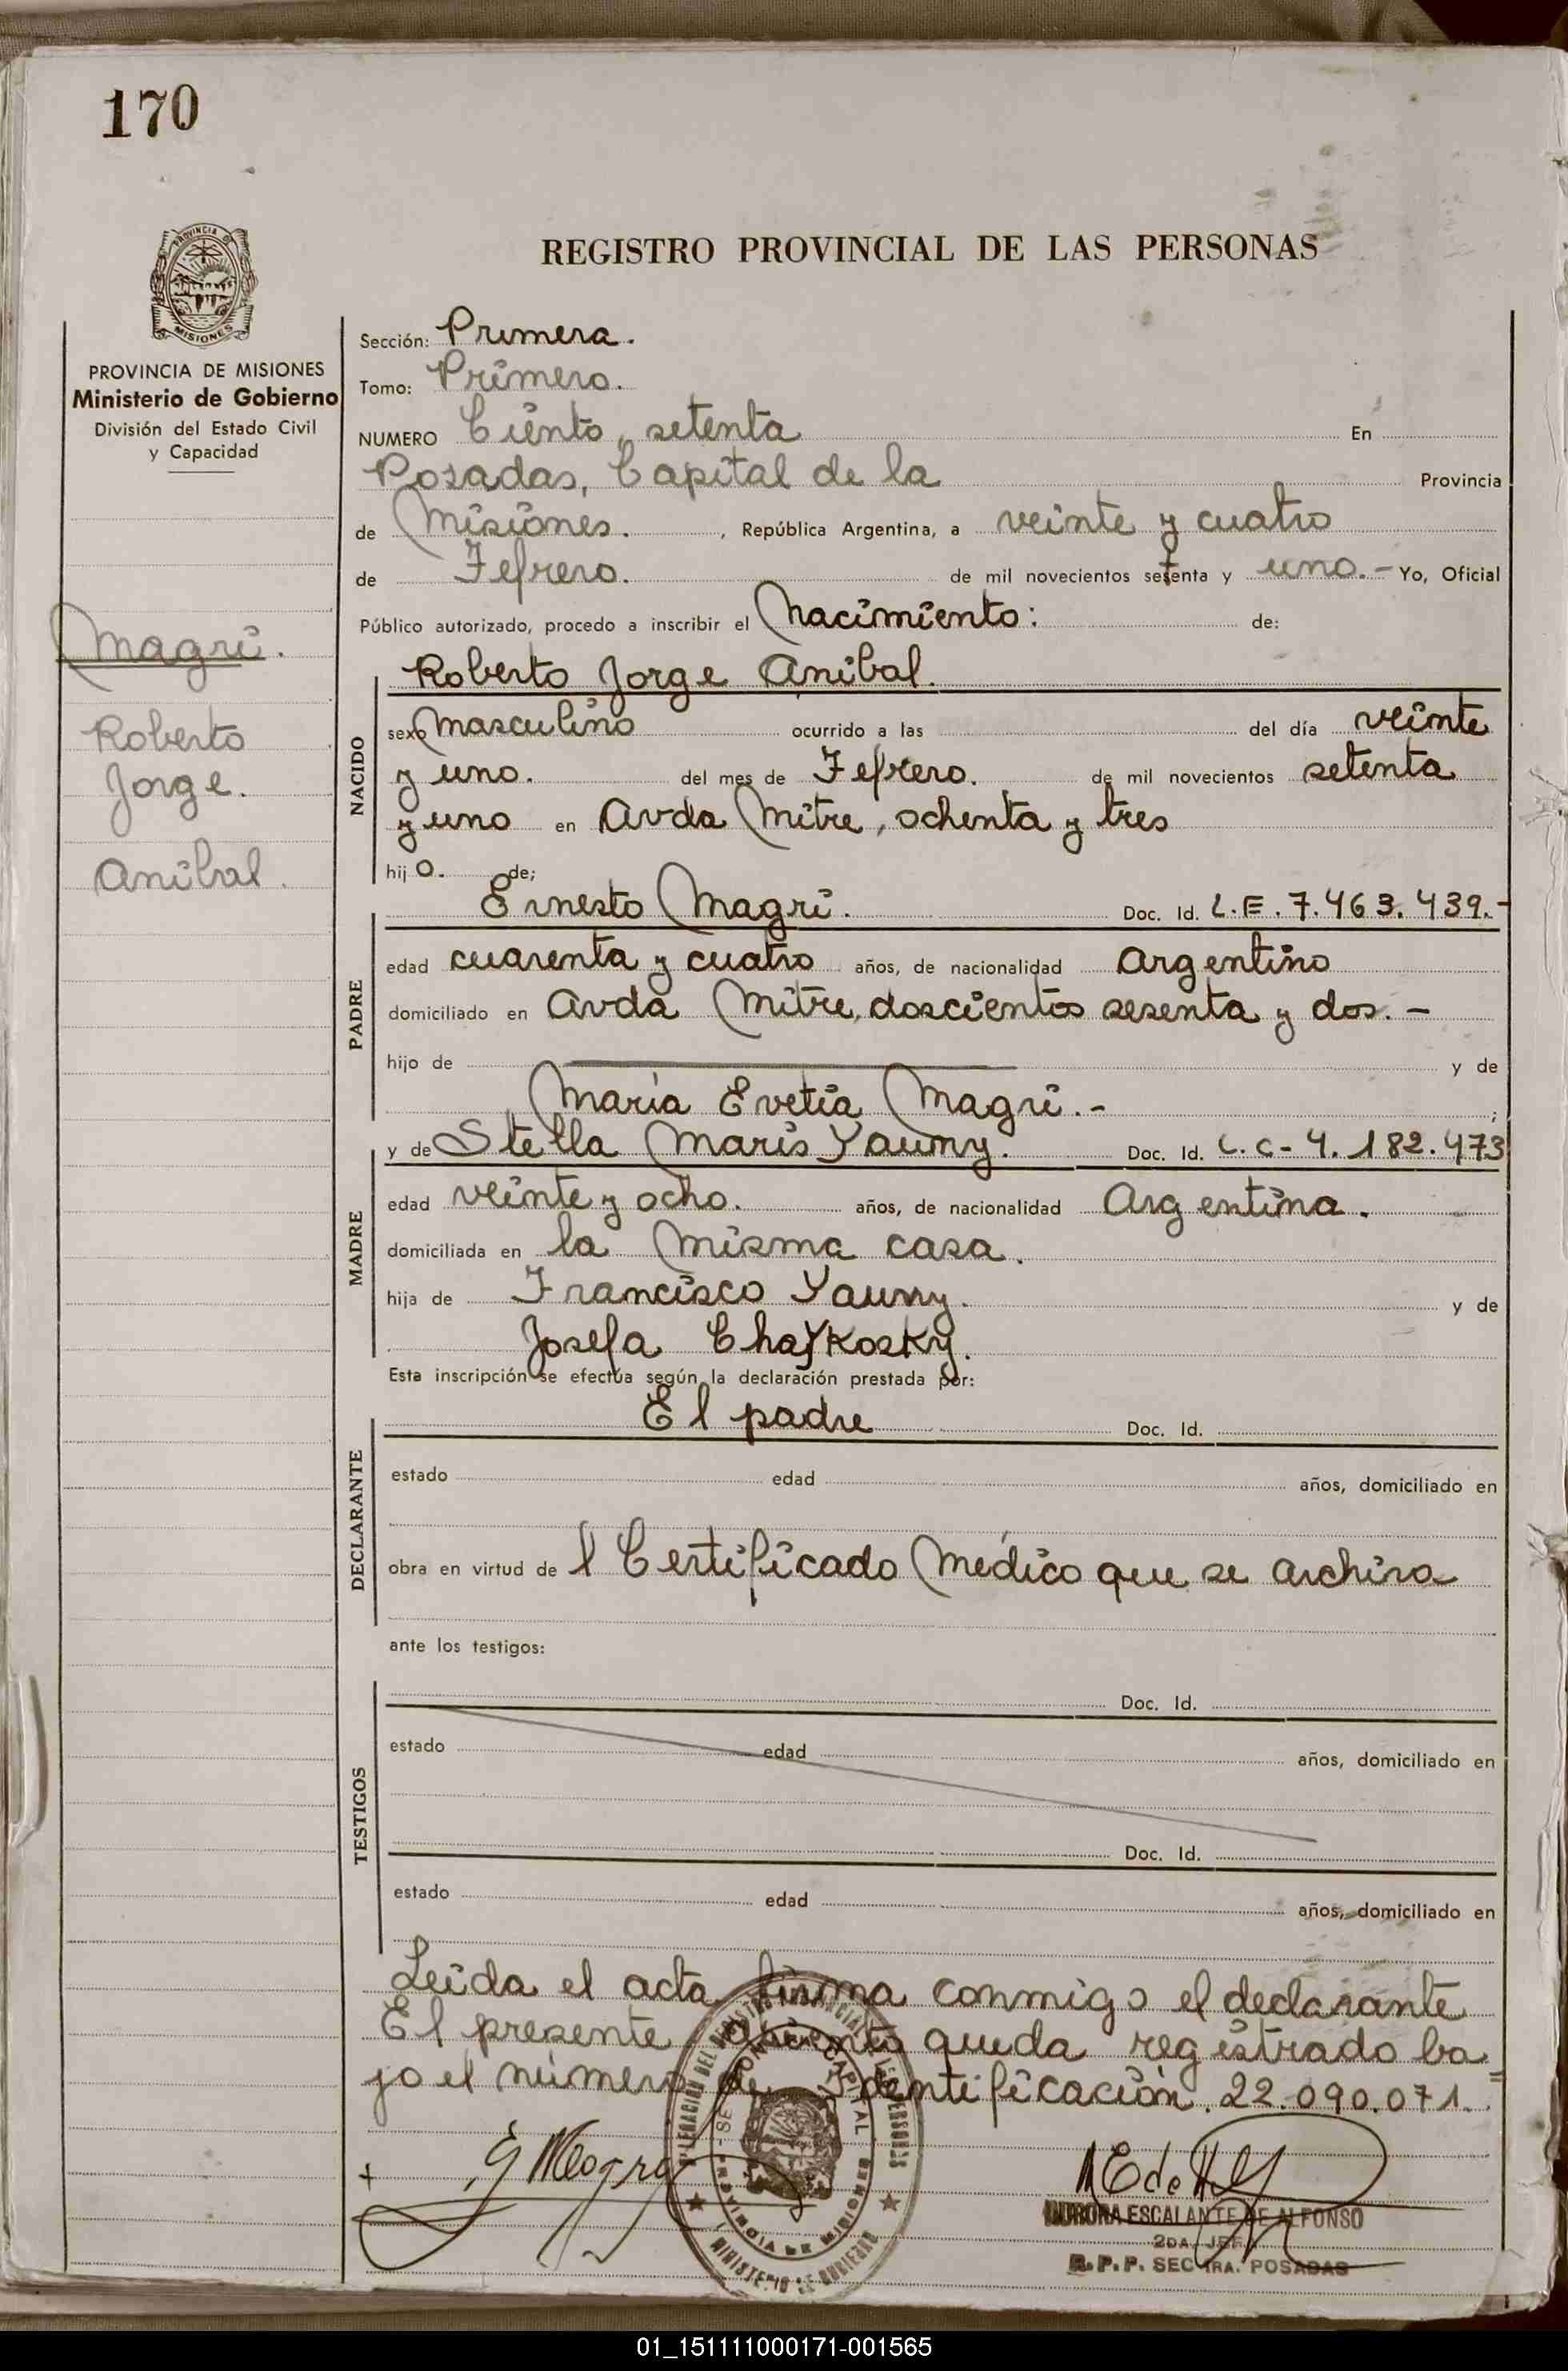 170
REGISTRO PROVINCIAL DE LAS PERSONAS
PROVINCIA DE MISIONES
Ministerio de Gobierno
División del Estado Civil
y Capacidad
Magri.
Roberto
Jorge.
Anibal.
Sección: Primera.
Tomo: Primero.
NUMERO Ciento setenta En
Posadas, Capital de la Provincia
de Misiones. , República Argentina, a veinte y cuatro
de Febrero. de mil novecientos setenta y uno.- Yo, Oficial
Público autorizado, procedo a inscribir el Nacimiento: de:
Roberto Jorge Anibal.
NACIDO
sexo masculino ocurrido a las del día veinte
y uno. del mes de Febrero. de mil novecientos setenta
y uno en Avda Mitre, ochenta y tres
hijo. de;
Ernesto Magri. Doc. Id. L.E. 7.463.439.-
PADRE
edad cuarenta y cuatro años, de nacionalidad Argentino
domiciliado en Avda Mitre, doscientos sesenta y dos. -
hijo de y de
Maria Evetia Magri.- ;
y de Stella Maris Yauny. Doc. Id. L.C- 4.182.473
MADRE
edad veinte y ocho. años, de nacionalidad Argentina.
domiciliada en la misma casa.
hija de Francisco Yauny. y de
Josefa Chaykosky.
Esta inscripción se efectúa según la declaración prestada por:
El padre Doc. Id.
DECLARANTE
estado edad años, domiciliado en
obra en virtud de l Certificado Médico que se archiva
ante los testigos:
Doc. Id.
TESTIGOS
estado edad años, domiciliado en
Doc. Id.
estado edad años, domiciliado en
Leida el acta firma conmigo el declarante
El presente asiento queda registrado ba
jo el número de Identificación. 22.090.071.
E Magri
AURORA ESCALANTE DE ALFONSO
2DA. JEFE
R.P.P. SEC 1RA. POSADAS
PROVINCIA DE MISIONES
MINISTERIO DE GOBIERNO
01_151111000171-001565